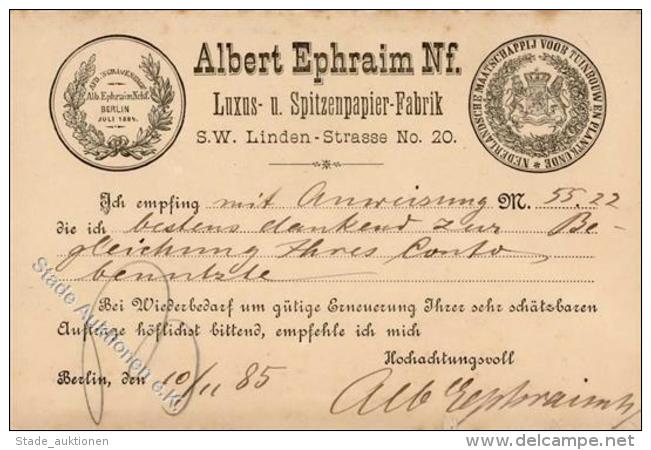 Albert Ephraim Nf.
Luxus- u. Spitzenpapier-Fabrik
S.W. Linden-Strasse No. 20.
Alb. Ephraim Nchf.
BERLIN
JULI 1884.
NEDERLANDSCHE MAATSCHAPPIJ VOOR TUINBOUW EN PLANTKUNDE
Ich empfing mit Anweisung M. 55.22
die ich bestens dankend zur Be-
gleichung Ihres Conto
benutzte
Bei Wiederbedarf um gütige Erneuerung Ihrer sehr schätzbaren
Aufträge höflichst bittend, empfehle ich mich
Hochachtungsvoll
Berlin, den 10/11 85
Alb Ephraim
Stade Auktionen e.K.
Stade_auktionen
www.delcampe.net